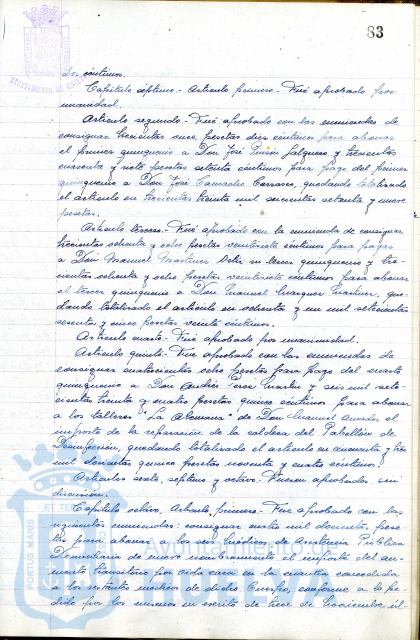 83
dos céntimos.
Capítulo séptimo.- Artículo primero.- Fué aprobado por
unanimidad.
Artículo segundo.- Fué aprobado con las enmiendas de
consignar trescientas once pesetas diez céntimos para abonar
el primer quinquenio a Don José Salguero y trescientas
cuarenta y siete pesetas setenta céntimos para pago del primer
quinquenio a Don José Camacho Carrasco, quedando totalizado
el artículo en trescientas treinta mil seiscientas setenta y nueve
pesetas.
Artículo tercero.- Fué aprobado con la enmienda de consignar
trescientas ochenta y ocho pesetas veintisiete céntimos para pagar
a Don Manuel Martínez su tercer quinquenio y tres-
cientas ochenta y ocho pesetas veintisiete céntimos para abonar
el tercer quinquenio a Don Manuel Márquez Martínez, que-
dando totalizado el artículo en ochenta y un mil setecientas
sesenta y cinco pesetas veinte céntimos.
Artículo cuarto.- Fué aprobado por unanimidad.
Artículo quinto.- Fué aprobado con las enmiendas de
consignar cuatrocientas ocho pesetas para pago del cuarto
quinquenio a Don Andrés y seis mil sete-
cientas treinta y cuatro pesetas quince céntimos para abonar
a los talleres "La Alemana" de Don Manuel el
importe de la reparación de la caldera del Pabellón de
Desinfección, quedando totalizado el artículo en cuarenta y tres
mil doscientas quince pesetas noventa y cuatro céntimos.
Artículos sexto, séptimo y octavo.- Fueron aprobados sin
discusión.
Capítulo octavo. Artículo primero.- Fué aprobado con las
siguientes enmiendas: consignar cuatro mil doscientas pese-
tas para abonar a los seis médicos de Asistencia Pública
Domiciliaria de nuevo nombramiento el importe del au-
mento transitorio por vida cara en la cuantía concedida
a los restantes médicos de dicho Cuerpo, conforme a lo pe-
dido por los mismos en escrito de trece de Noviembre úl-
PORTUS MARIS